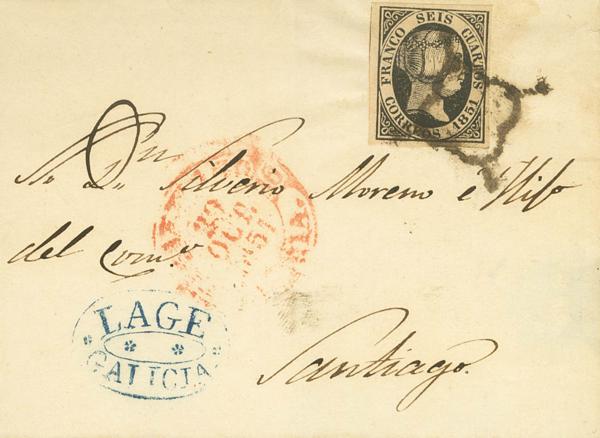 FRANCO SEIS CUARTOS
CORREOS 1851
Sr Dn Silverio Moreno e Hijo
del como
Santiago.
LAGE
GALICIA